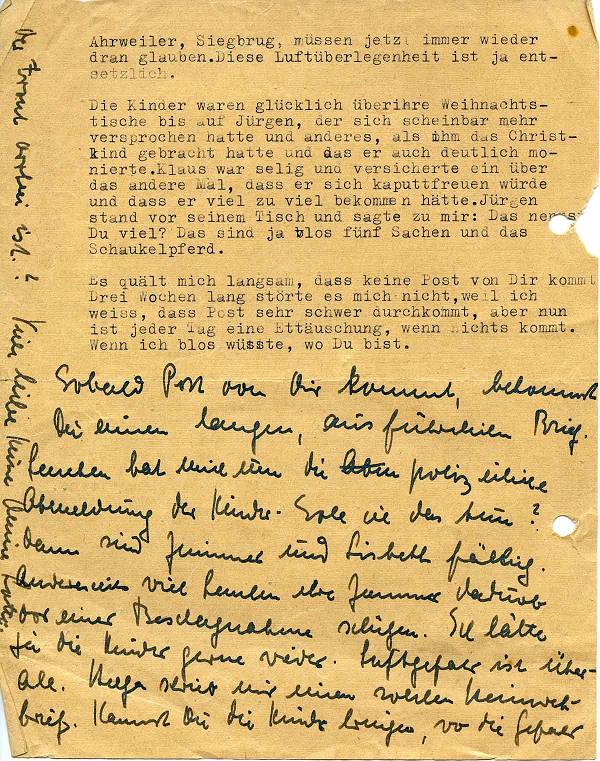 Ahrweiler, Siegbrug, müssen jetzt immer wieder
dran glauben.Diese Luftüberlegenheit ist ja ent-
setzlich.
Die Kinder waren glücklich überihre Weihnachts-
tische bis auf Jürgen, der sich scheinbar mehr
versprochen hatte und anderes, als ihm das Christ-
kind gebracht hatte und das er auch deutlich mo-
nierte.Klaus war selig und versicherte ein über
das andere Mal, dass er sich kaputtfreuen würde
und dass er viel zu viel bekommen hätte.Jürgen
stand vor seinem Tisch und sagte zu mir: Das nenns
Du viel? Das sind ja blos fünf Sachen und das
Schaukelpferd.
Es quält mich langsam, dass keine Post von Dir kommt
Drei Wochen lang störte es mich nicht,weil ich
weiss, dass Post sehr schwer durchkommt, aber nun
ist jeder Tag eine Ettäuschung, wenn nichts kommt.
Wenn ich blos wüsste, wo Du bist.
Sobald Post von Dir kommt, bekommst
Du einen langen, ausführlichen Brief.
Lenchen bat mich um die polizeiliche
Abmeldung der Kinder. Soll ich das tun?
Dann sind Zimmer und Lisbeth fällig.
Andererseits will Lenchen ihre Zimmer dadurch
vor einer Beschlagnahme schützen. Ich hätte
ja die Kinder gerne wieder. Luftgefahr ist über-
all. Helga schrieb mir einen Heimweh-
brief. Kannst Du die Kinder bringen, wo die Gefahr
der Front vorbei ist?